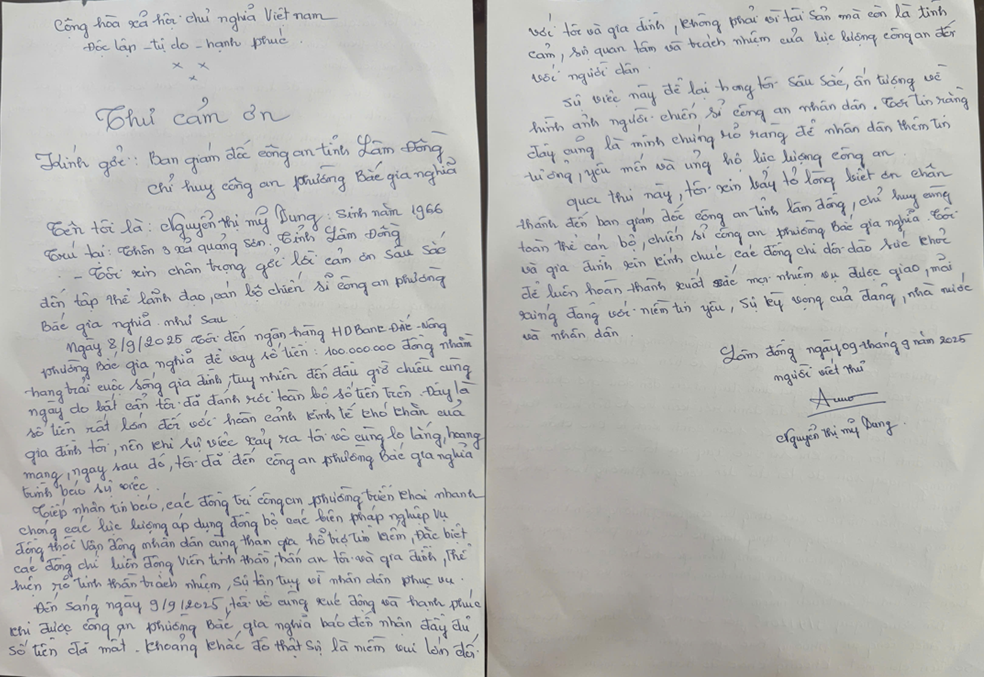 Cộng hòa xả hội chủ nghĩa Việt nam
Độc lập - tự do - hạnh phúc
x x
x
Thư cảm ơn
Kính gởi: Ban giám đốc công an tỉnh Lâm Đồng
chỉ huy công an phường Bắc gia nghĩa
Tên tôi là: Nguyễn thị mỹ Dung: Sinh năm 1966
Trú tại: Thôn 3 xả quảng sơn. Tỉnh Lâm Đồng
- Tôi xin chân trọng gởi lời cảm ơn sâu sắc
đến tập thể lảnh đạo, cán bộ chiến sỉ công an phường
Bắc gia nghĩa như sau
Ngày 8/9/2025 Tôi đến ngân hàng HDBank Đắc-Nông
phường Bắc gia nghĩa để vay số tiền: 100.000.000 đồng nhằm
trang trải cuộc sống gia đình, tuy nhiên đến đầu giờ chiều cùng
ngày do bất cẩn tôi đã đánh rớt toàn bộ số tiền trên. Đây là
số tiền rất lớn đối với hoàn cảnh kinh tế khó khăn của
gia đình tôi, nên khi sự việc xảy ra tôi vô cùng lo lắng, hoang
mang, ngay sau đó, tôi đã đến công an phường Bắc gia nghĩa
trình báo sự việc.
Tiếp nhận tin báo, các đồng trí công an phường triển khai nhanh
chóng các lực lượng áp dụng đồng bộ các biên pháp nghiệp vụ
đồng thời vận động nhân dân cùng tham gia hổ trợ tìm kiếm, Đặc biệt
các đồng chí luôn động viên tinh thần, trấn an tôi và gia đình, thể
hiện rỏ tinh thần trách nhiệm, sự tận tụy vì nhân dân phục vụ.
Đến sáng ngày 9/9/2025, tôi vô cùng xúc động và hạnh phúc
khi được công an phường Bắc gia nghĩa báo đến nhận đầy đủ
số tiền đã mất. khoảng khắc đó thật sự là niềm vui lớn đối
với tôi và gia đình, không phải vì tài sản mà còn là tình
cảm, sự quan tâm và trách nhiệm của lực lượng công an đối
với người dân.
Sự việc này để lại trong tôi sâu sắc, ấn tượng về
hình ảnh người chiến sỉ công an nhân dân. Tôi tin rằng
đây củng là minh chứng rỏ ràng để nhân dân thêm tin
tưởng, yêu mến và ủng hộ lực lượng công an.
qua thư này, tôi xin bày tỏ lòng biết ơn chân
thành đến ban giám đốc công an tỉnh lâm đồng, chỉ huy cùng
toàn thể cán bộ, chiến sỉ công an phường Bắc gia nghĩa. Tôi
và gia đình xin kính chúc các đồng chí dồi dào sức khỏe
để luôn hoàn thành xuất sắc mọi nhiệm vụ được giao, mãi
xứng đáng với niềm tin yêu, sự kỳ vọng của đảng, nhà nước
và nhân dân
Lâm đồng ngày 09 tháng 9 năm 2025
người viết thư
Nguyễn thị mỹ Dung.